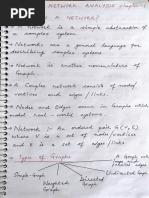 NETWORK ANALYSIS chapter-1
A NETWORK?
A Network is a simple abstraction of
a complex system.
Networks are a general language for
describing complex system.
Network is another nomenclature of
Graph.
A Complex network consists of nodes/
vertices and edges / links.
Nodes and Edges occur in Graphs which
model real-world
Network :- An ordered pair G(V,E)
where V is a set of nodes / vertices
and E is a set of edges / links.
Type of Graphs
Weighted
Graph
Directed
Graph
Undirected Graph